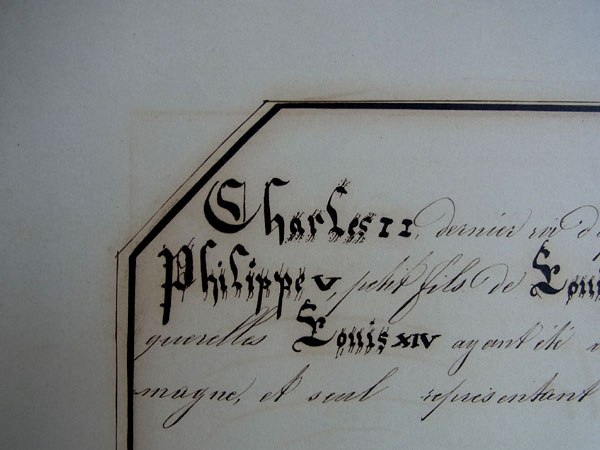 Charles II, dernier roi d'
Philippe V, petit fils de Loui
querelles Louis XIV ayant été
magne, et seul représentant